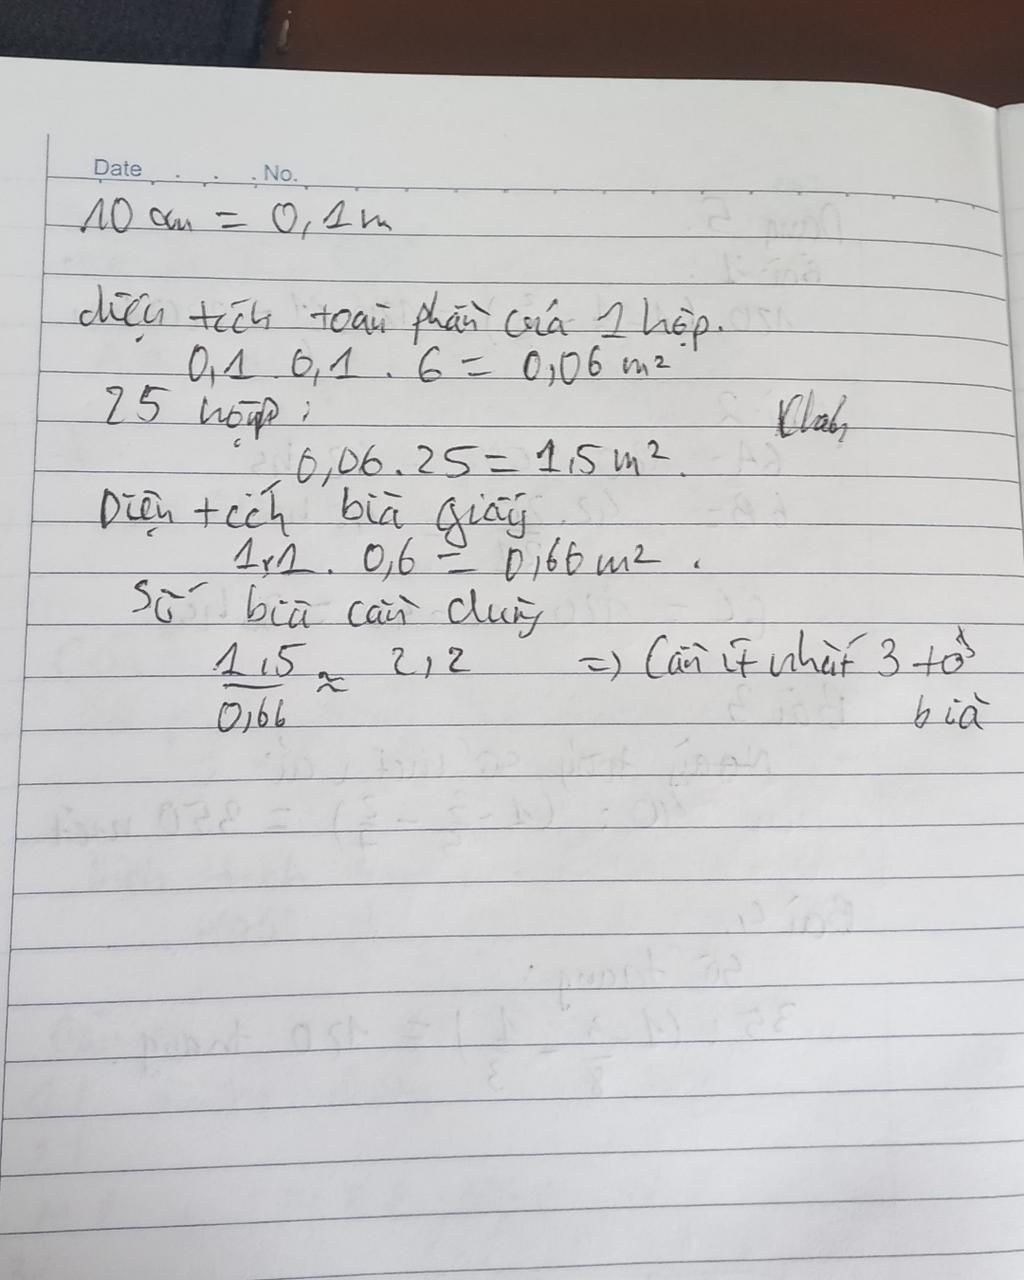 Date . . . No.
10 cm = 0,1 m
diện tích toàn phần của 1 hộp.
0,1 . 0,1 . 6 = 0,06 m²
25 hộp :
0,06 . 25 = 1,5 m².
Diện tích bìa giấy
1,1 . 0,6 = 0,66 m² .
Số bìa cần dùng
1,5
0,66 ≈ 2,2 => Cần ít nhất 3 tờ
bìa